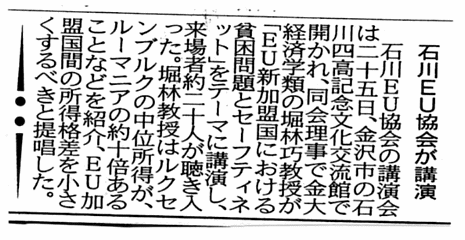 石川EU協会が講演
石川EU協会の講演会
は二十五日、金沢市の石
川四高記念文化交流館で
開かれ、同会理事で金大
経済学類の堀林巧教授が
「EU新加盟国における
貧困問題とセーフティネ
ット」をテーマに講演し、
来場者約二十人が聴き入
った。堀林教授はルクセ
ンブルクの中位所得が、
ルーマニアの約十倍ある
ことなどを紹介、EU加
盟国間の所得格差を小さ
くするべきと提唱した。